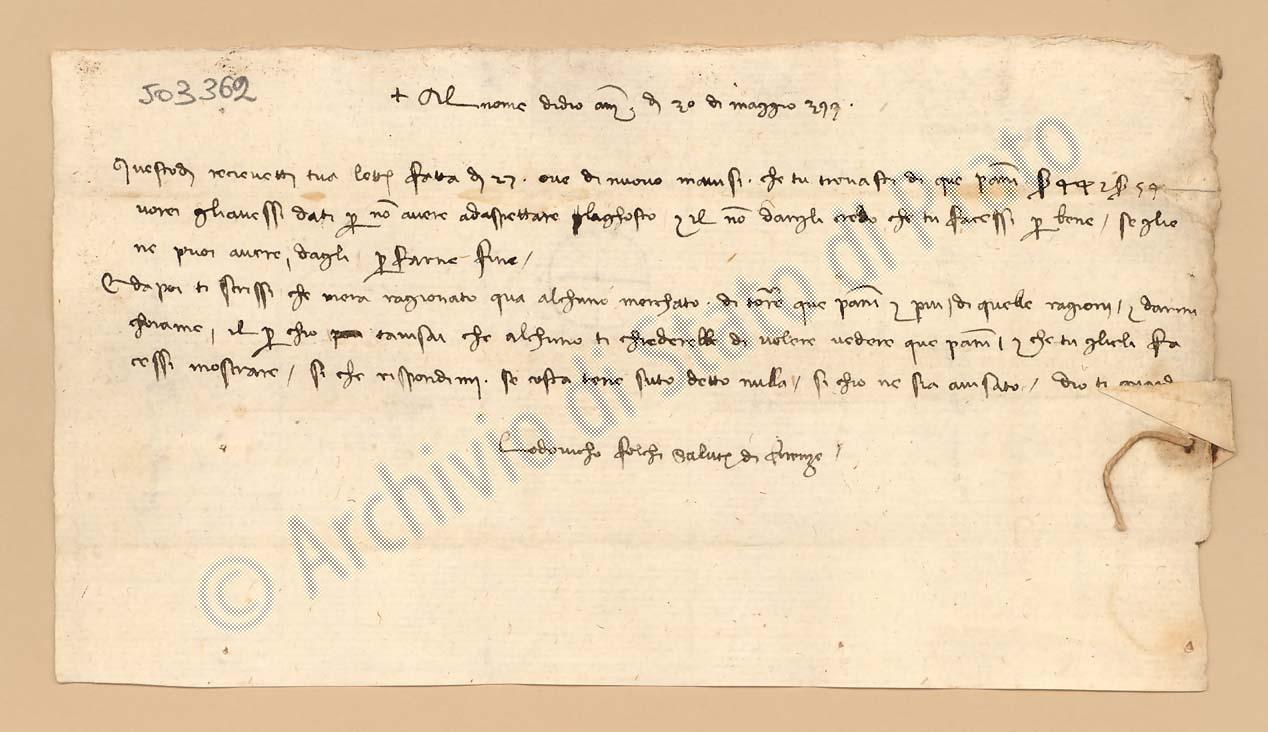 503362
+ Al nome di dio am. dì 30 di maggio 399.
Questo dì ricievetti tua lett. fatta dì 27. ove di nuovo mavisi. che tu trovasti di que panni
vorei gliavessi dati p non avere adaspettare laghosto e il non dargli credo che tu facessi p bene / seglie
ne puoi avere, dagli p farne fine /
E dapoi ti scrissi che mera ragionato qua alchuno merchato. di torre que panni e piu, di quelle ragioni, e darmi
choiame, il p chio tavisai che alchuno ti chiederebbe di volere vedere que panni, e che tu glieli fa
cessi mostrare / si che rispondimi. se costa tene suto detto nulla / si chio ne sia avisato / dio ti
Lodovicho folchi salut di firenze /
© Archivio di Stato di Prato